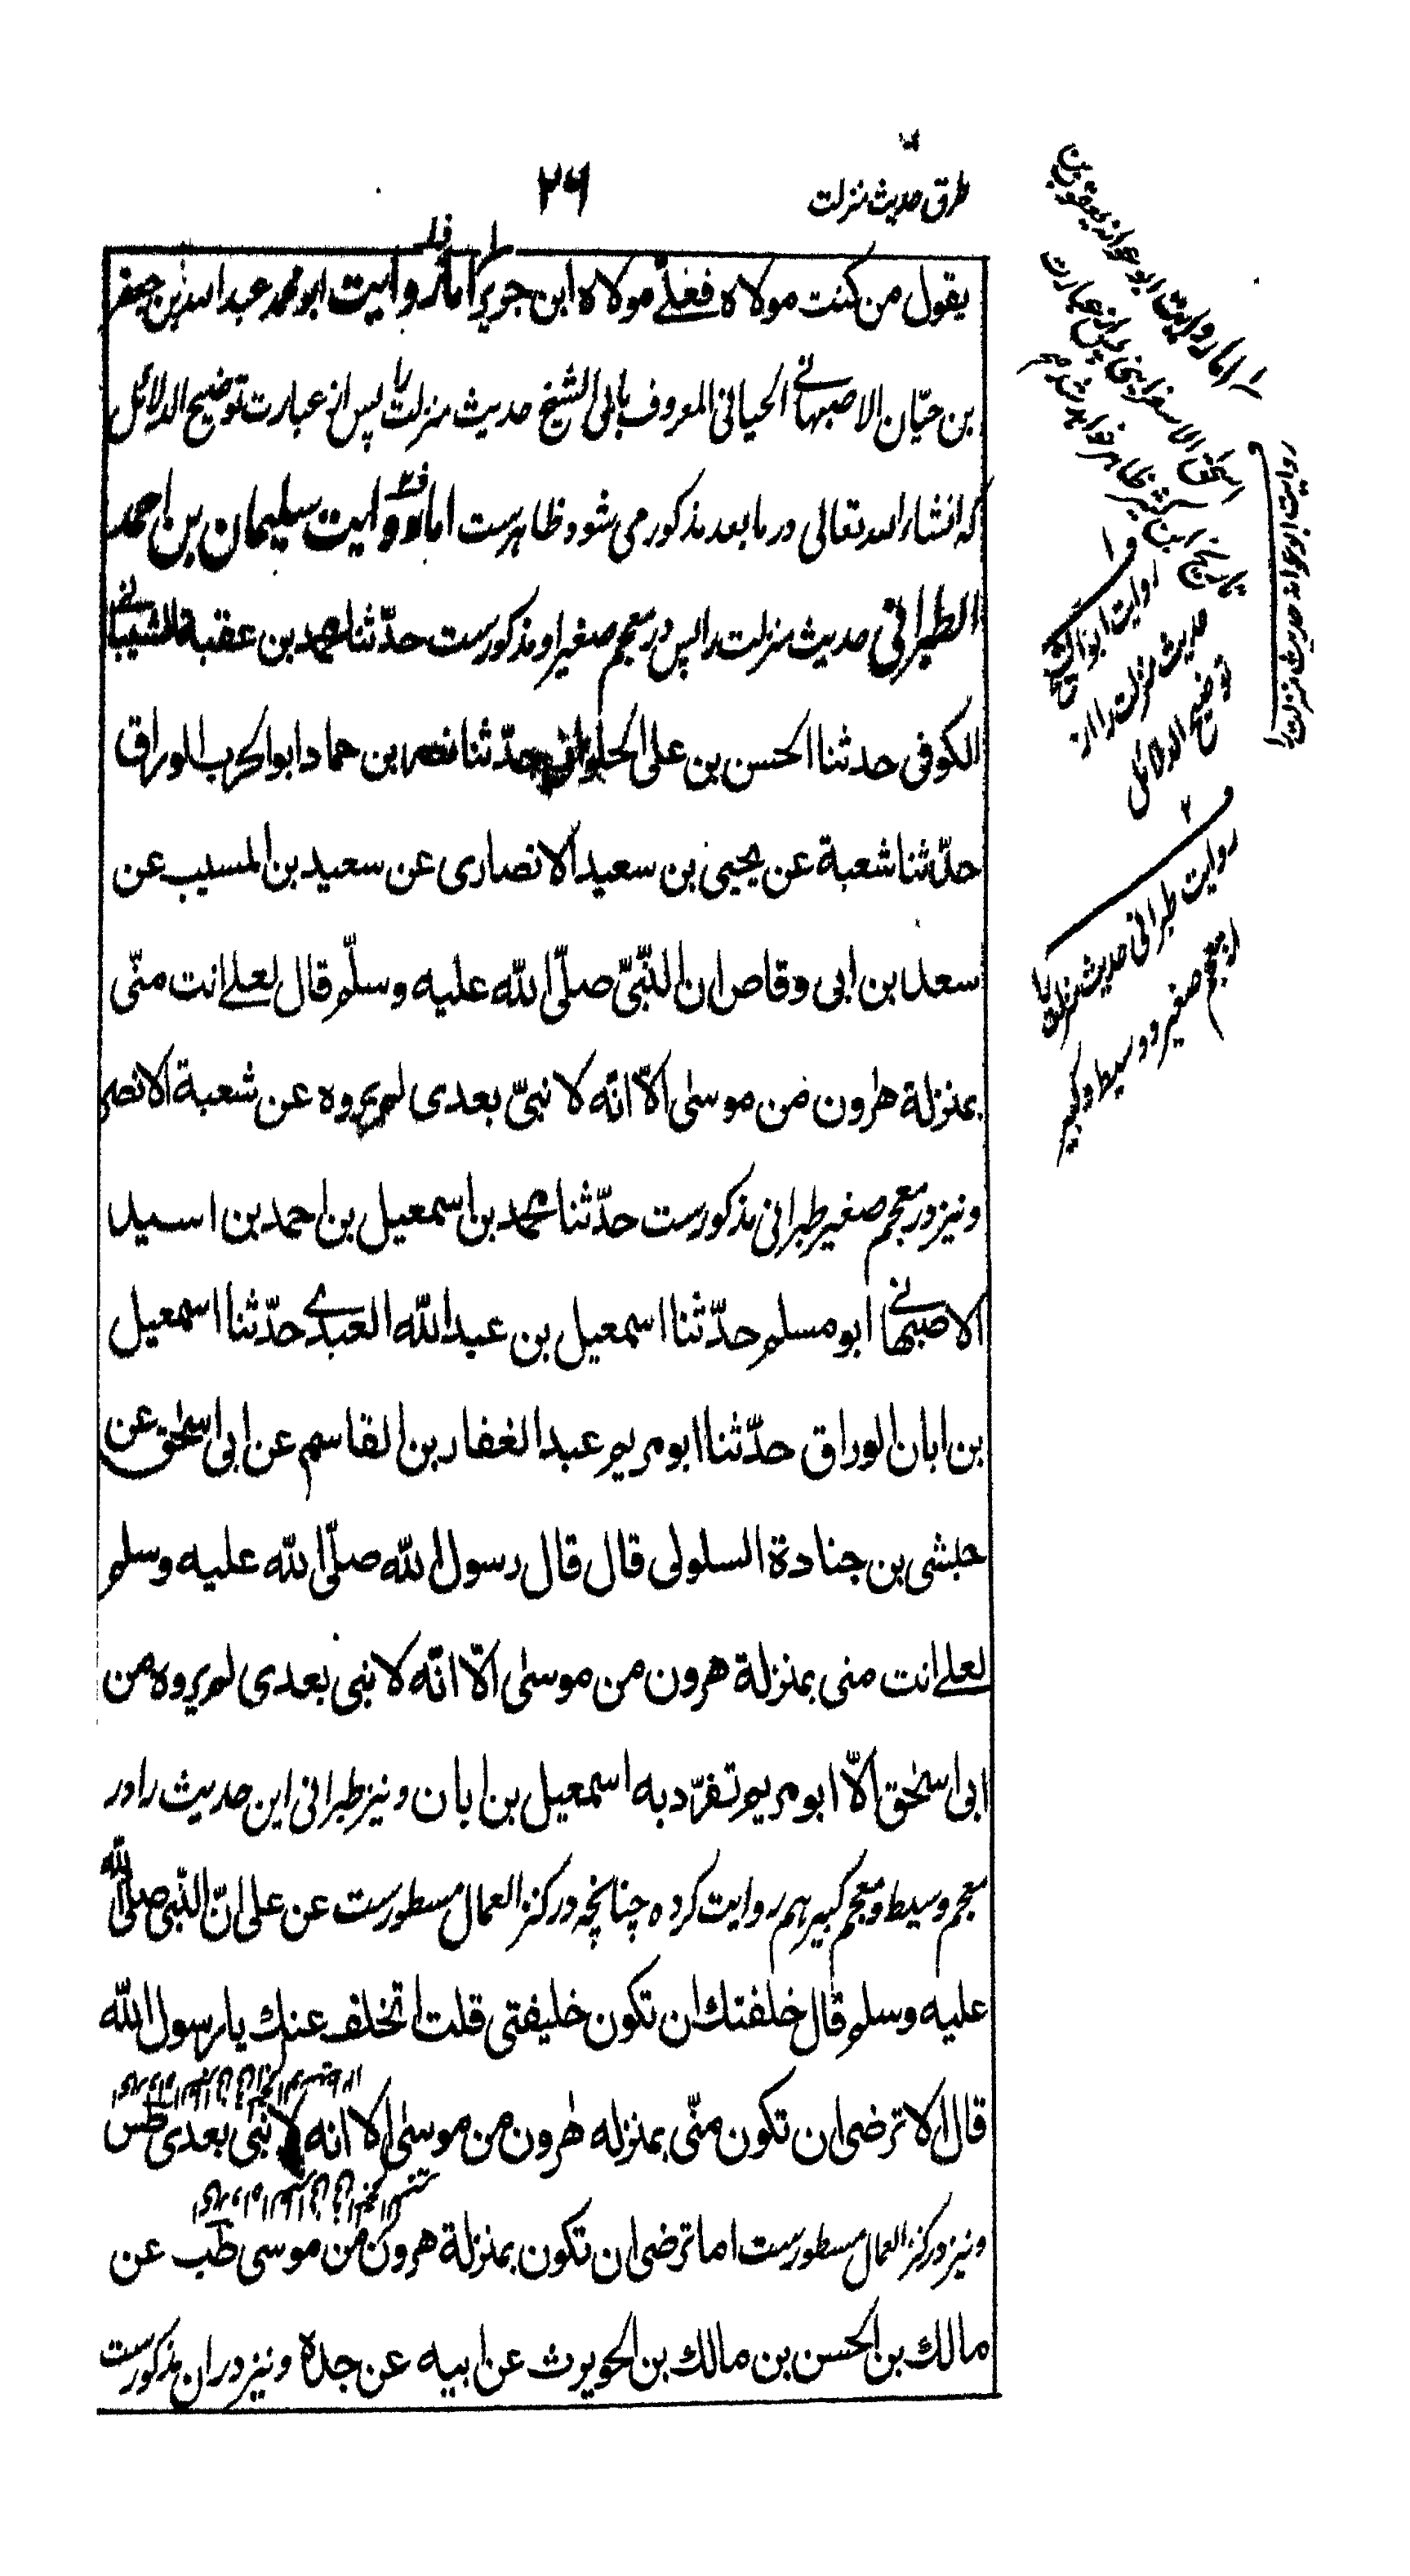 طرق حدیث منزلت
۲۶
یقول من کنت مولاه فعلی مولاه ابن جریر اما روایت ابو محمد عبد الله بن جعفر
بن حیّان الاصبهانی الحیانی المعروف بابی الشیخ حدیث منزلت را پس از عبارت توضیح الدلائل
که انشاء الله تعالی در ما بعد مذکور می شود ظاهرست اما روایت سلیمان بن احمد
الطبرانی حدیث منزلت را پس در معجم صغیر او مذکورست حدّثنا محمد بن عقبة الشیبانی
الکوفی حدثنا الحسن بن علی الحلوانی حدّثنا نصر بن حماد ابو الحرب الوراق
حدّثنا شعبة عن یحیی بن سعید الانصاری عن سعید بن المسیب عن
سعد بن ابی وقاص ان النّبیّ صلّی الله علیه وسلّم قال لعلی انت منّی
بمنزلة هرون من موسٰی الّا انّه لا نبیّ بعدی لم یروه عن شعبة الا نصر
و نیز در معجم صغیر طبرانی مذکورست حدّثنا محمد بن اسمعیل بن احمد بن اسید
الاصبهانی ابو مسلم حدّثنا اسمعیل بن عبد الله العبدی حدّثنا اسمعیل
بن ابان الوراق حدّثنا ابو مریم عبد الغفار بن القاسم عن ابی اسحٰق عن
حبشی بن جنادة السلولی قال قال رسول الله صلّی الله علیه وسلم
لعلی انت منی بمنزلة هرون من موسٰی الّا انّه لا نبی بعدی لم یروه من
ابی اسحٰق الّا ابو مریم تفرّد به اسمعیل بن ابان و نیز طبرانی این حدیث را در
معجم وسیط و معجم کبیر هم روایت کرده چنانچه در کنز العمال مسطورست عن علی انّ النّبی صلی الله
علیه وسلم قال خلفتك ان تکون خلیفتی قلت اتخلف عنك یا رسول الله
قال الا ترضی ان تکون منّی بمنزله هٰرون من موسٰی الا انه لا نبی بعدی طس
و نیز در کنز العمال مسطورست اما ترضی ان تکون بمنزلة هرون من موسی طب عن
مالك بن الحسن بن مالك بن الحویرث عن ابیه عن جده و نیز در ان مذکورست
اما روایت ابو عوانه یعقوب بن
اسحٰق الاسفراینی پس از عبارت
تاریخ ابن کثیر ظاهر خواهد شد
روایت ابو عوانه حدیث منزلت را
روایت ابو الشیخ
حدیث منزلت را از
توضیح الدلائل
۲
روایت طبرانی حدیث منزلت را
در معجم صغیر و وسیط و کبیر